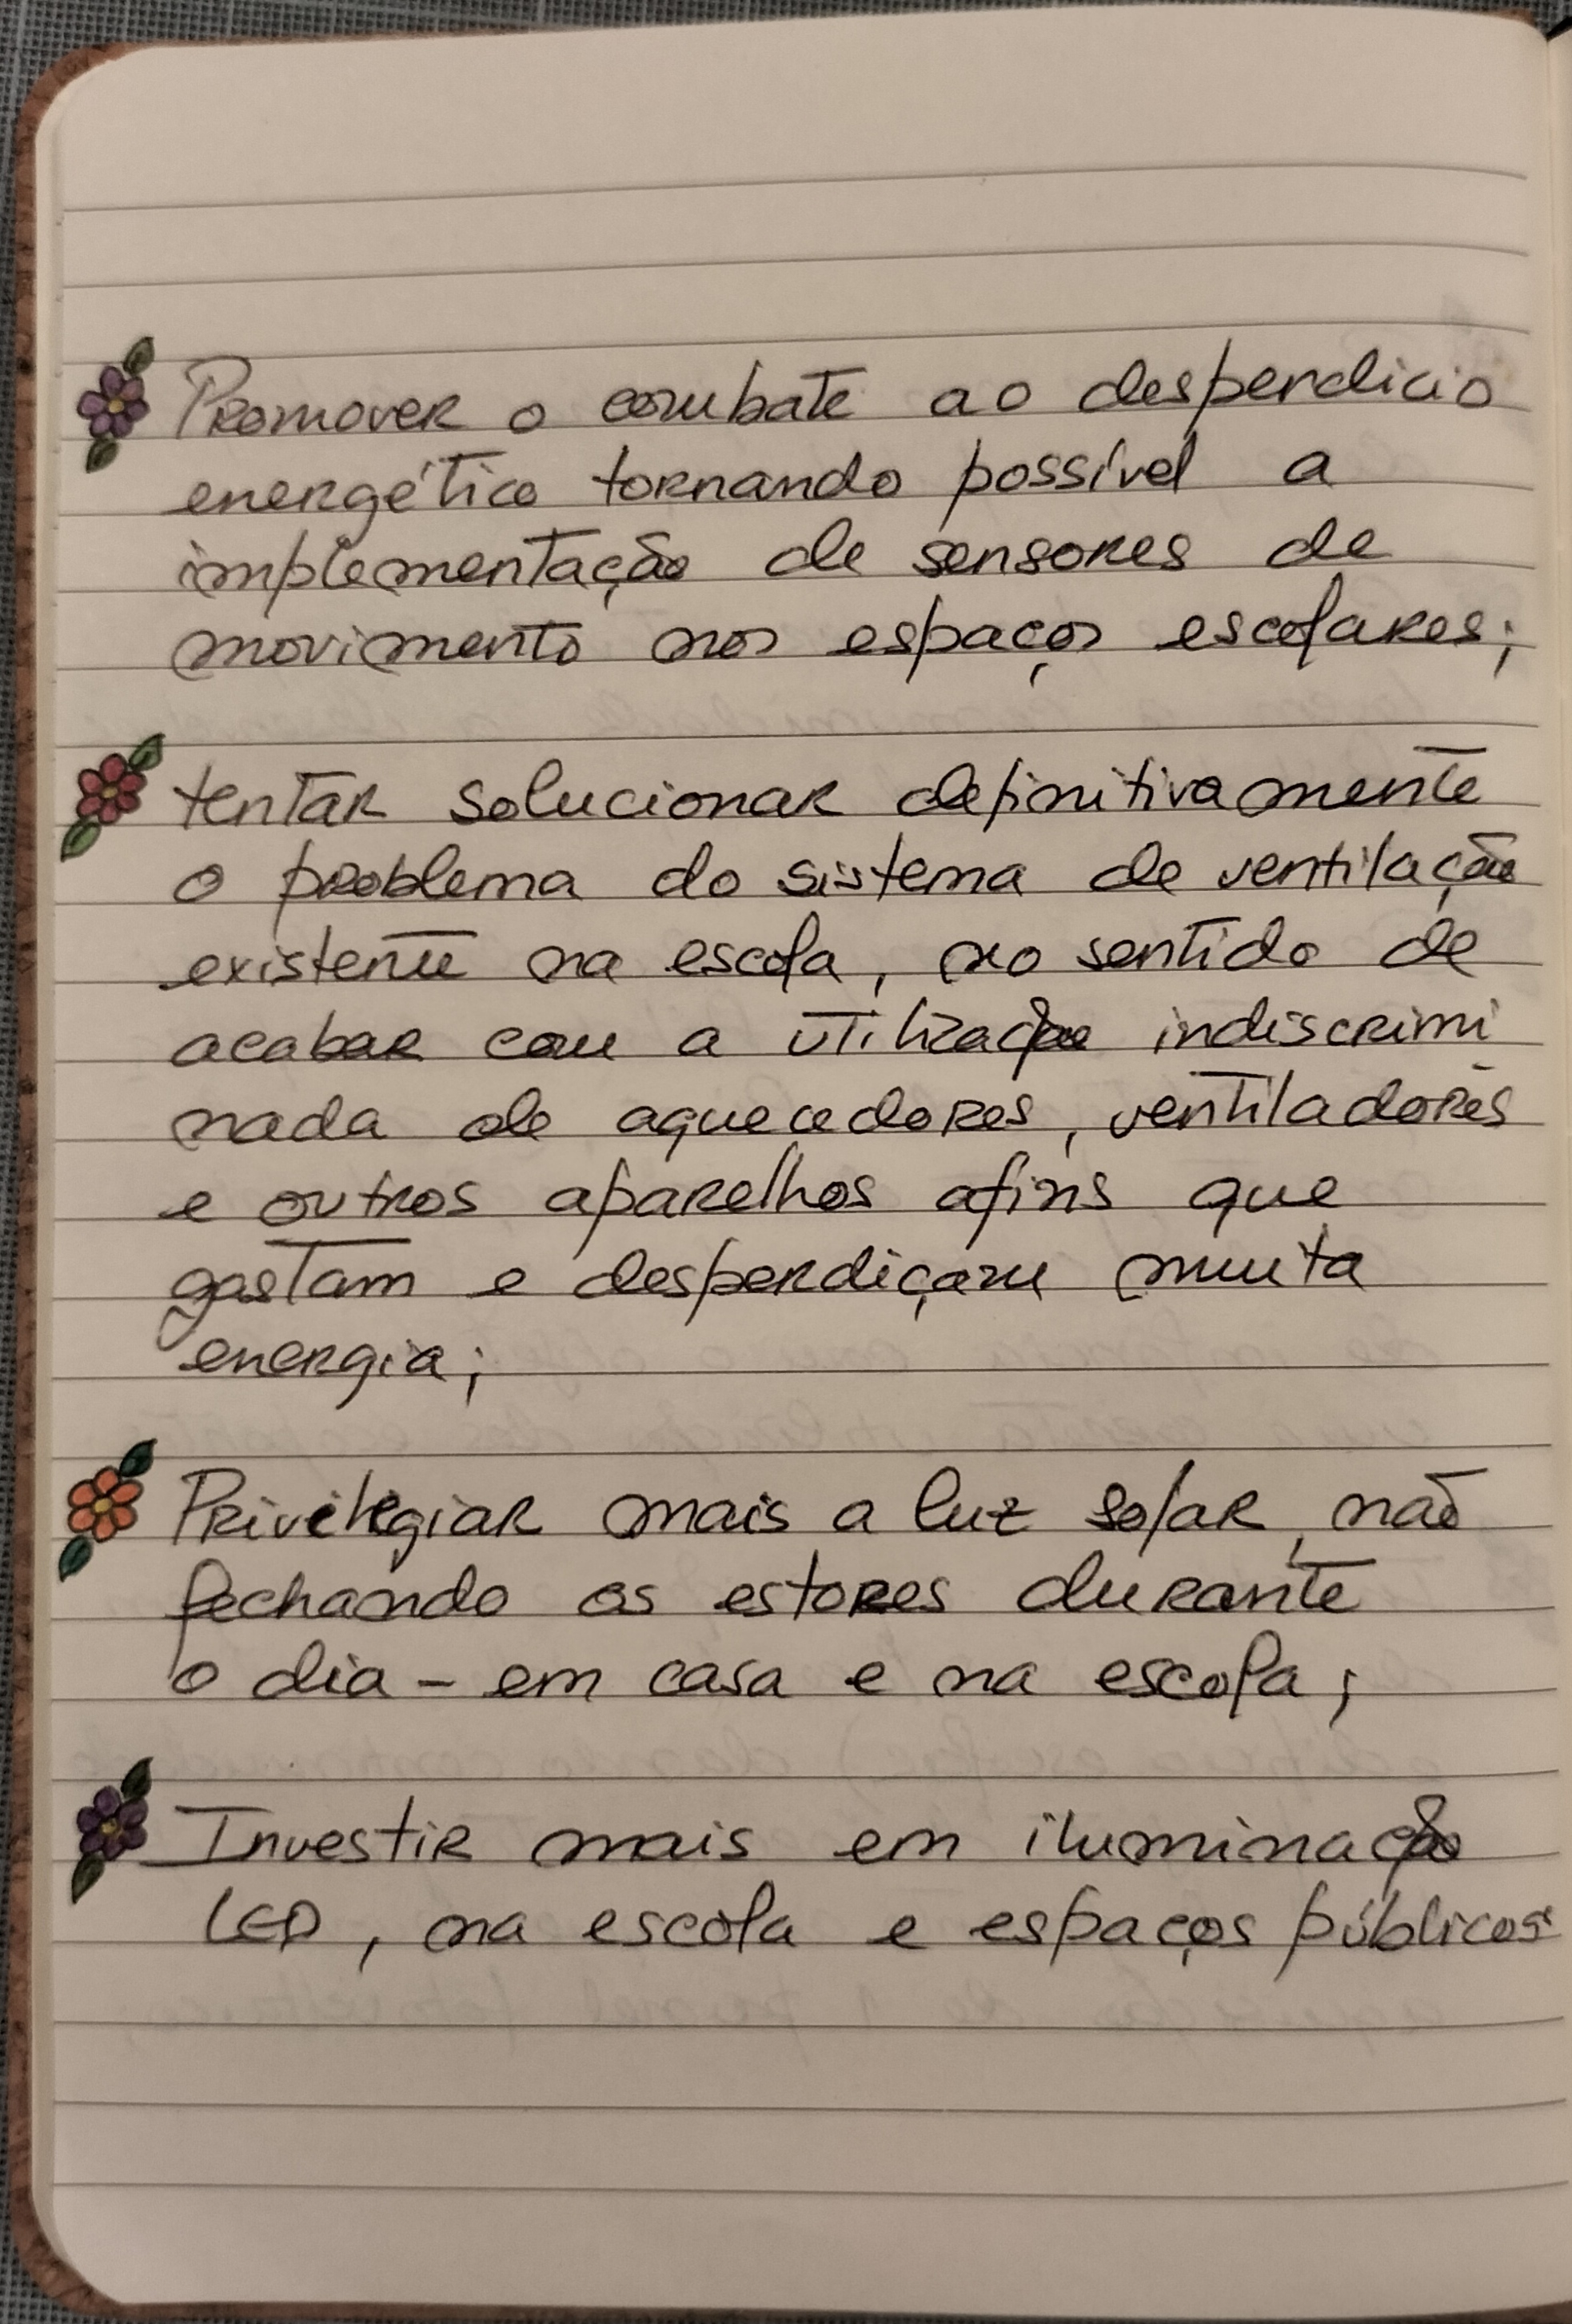 Promover o combate ao desperdicio
energético tornando possível a
implementação de sensores de
movimento nos espaços escolares;
tentar solucionar definitivamente
o problema do sistema de ventilação
existente na escola, no sentido de
acabar com a utilização indiscrimi
nada de aquecedores, ventiladores
e outros aparelhos afins que
gastam e desperdiçam muita
energia;
Privilegiar mais a luz solar, não
fechando os estores durante
o dia - em casa e na escola;
Investir mais em iluminação
LED, na escola e espaços públicos